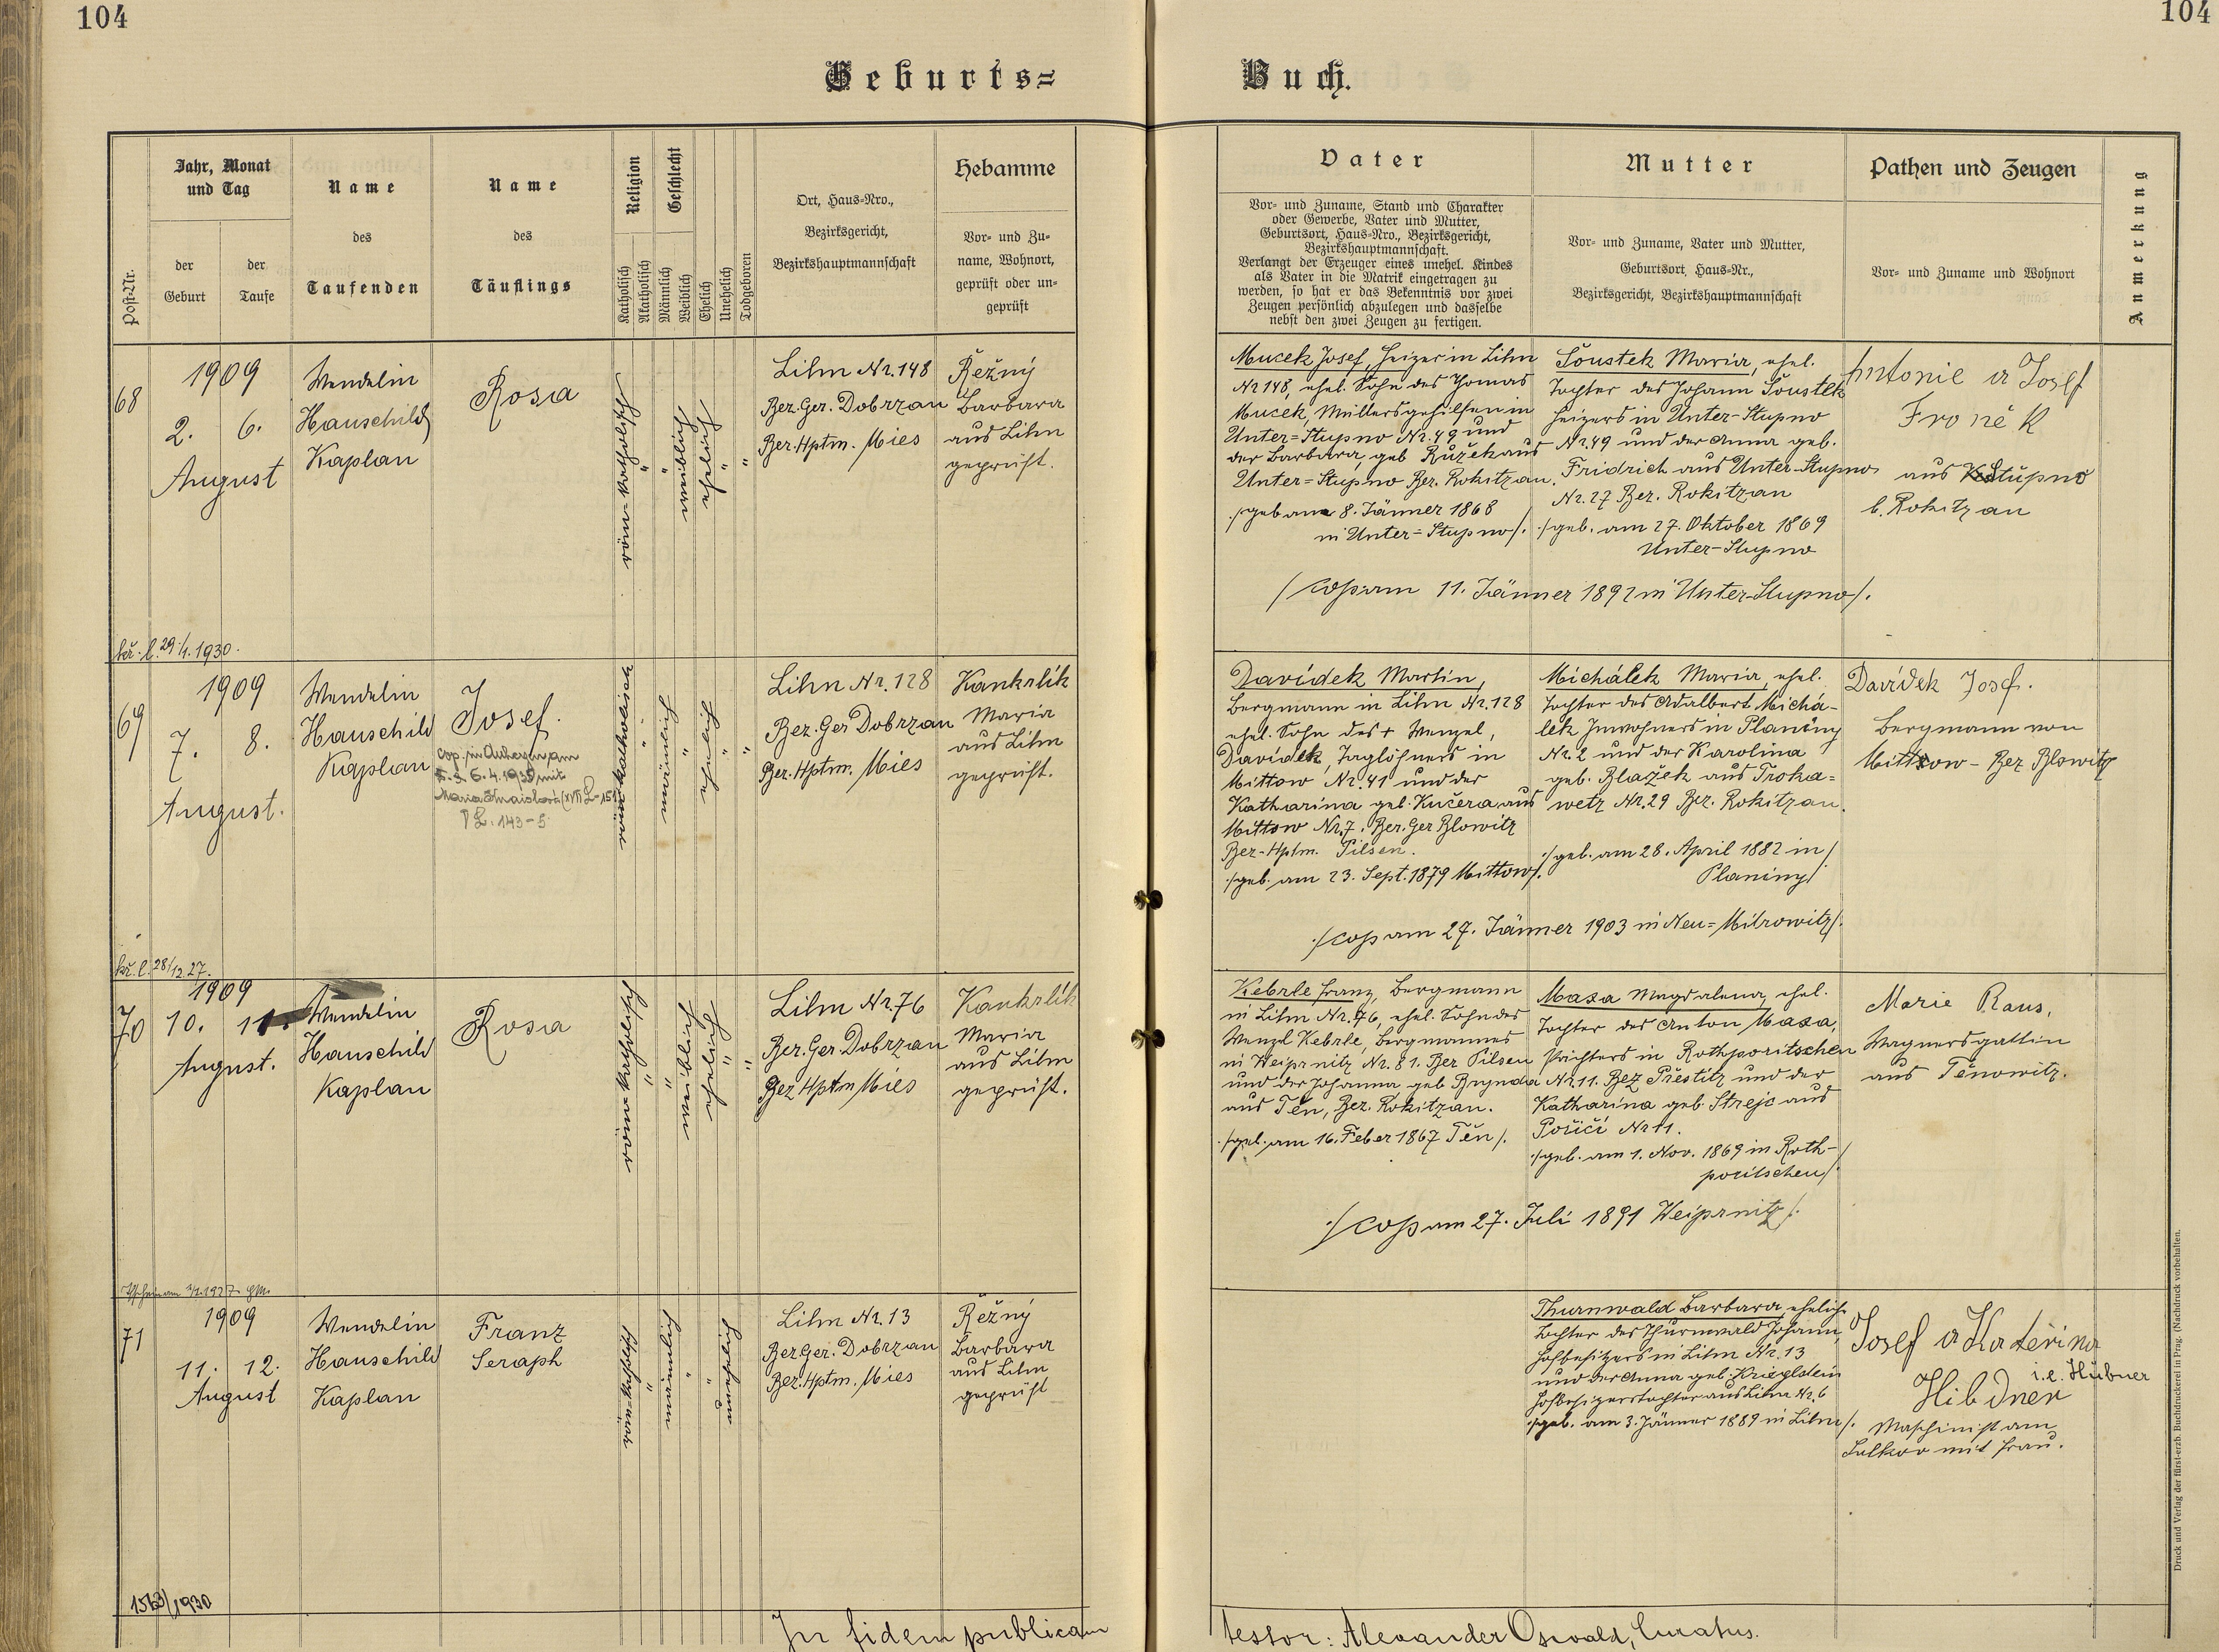 104
104
Geburts=
Buch.
Post-Nr.
Jahr, Monat
und Tag
der
Geburt
der
Taufe
Name
des
Taufenden
Name
des
Täuflings
Religion
Katholisch
Akatholisch
Geschlecht
Männlich
Weiblich
Ehelich
Unehelich
Todgeboren
Ort, Haus-Nro.,
Bezirksgericht,
Bezirkshauptmannschaft
Hebamme
Vor- und Zu-
name, Wohnort,
geprüft oder un-
geprüft
Vater
Vor- und Zuname, Stand und Charakter
oder Gewerbe, Vater und Mutter,
Geburtsort, Haus-Nro., Bezirksgericht,
Bezirkshauptmannschaft.
Verlangt der Erzeuger eines unehel. Kindes
als Vater in die Matrik eingetragen zu
werden, so hat er das Bekenntnis vor zwei
Zeugen persönlich abzulegen und dasselbe
nebst den zwei Zeugen zu fertigen.
Mutter
Vor- und Zuname, Vater und Mutter,
Geburtsort, Haus-Nr.,
Bezirksgericht, Bezirkshauptmannschaft
Pathen und Zeugen
Vor- und Zuname und Wohnort
Anmerkung
68
1909
2. 6.
August
Wendelin
Hauschild
Kaplan
Rosa
röm-katholisch
"
"
weiblich
ehelich
"
"
Lihn Nr. 148
Bez. Ger. Dobrzan
Bez. Hptm. Mies
Řežný
Barbara
aus Lihn
geprüft.
Mucek Josef, Heizer in Lihn
Nr 148, ehel. Sohn des Thomas
Mucek, Müllersgehilfen in
Unter=Stupno Nr. 49 und
der Barbara, geb Růžek aus
Unter=Stupno Bez. Rokitzan.
./geb am 8. Jänner 1868
in Unter=Stupno/.
Šoustek Maria, ehel.
Tochter des Johann Šoustek
Heizers in Unter-Stupno
Nr 49 und der Anna geb.
Fridrich aus Unter-Stupno
Nr. 27 Bez. Rokitzan
./geb. am 27. Oktober 1869
Unter-Stupno
/cop. am 11. Jänner 1892 in Unter-Stupno/.
Antonie a Josef
Froněk
aus Stupno
b. Rokitzan
kř. l. 29/1. 1930.
69
1909
7. 8.
August.
Wendelin
Hauschild
Kaplan
Josef.
röm katholisch
"
männlich
"
ehelich
"
"
Lihn Nr. 128
Bez. Ger Dobrzan
Bez. Hptm. Mies
Kankrlík
Maria
aus Lihn
geprüft.
Davídek Martin,
Bergmann in Lihn Nr. 128
ehel. Sohn des + Wenzel,
Davídek, Taglöhners in
Mittow Nr. 41 und der
Katharina geb. Kučera aus
Mittow Nr. 7. Bez. Ger Blowitz
Bez-Hptm. Pilsen.
./geb. am 23. Sept. 1879 Mittow/.
Michálek Maria, ehel.
Tochter des Adalbert Michá-
lek Inwohners in Planíny
Nr. 2 und der Karolina
geb. Blažek aus Troka=
wetz Nr. 29 Bez. Rokitzan.
./geb. am 28. April 1882 in/
Planiny/
./cop am 27. Jänner 1903 in Neu=Mitrowitz/.
Davídek Josef.
Bergmann von
Mittow - Bez Blowitz
kř. l. 28/12. 27.
70
1909
10. 11.
August.
Wendelin
Hauschild
Kaplan
Rosa
röm-katholisch
"
"
weiblich
ehelich
"
"
Lihn Nr. 76
Bez. Ger Dobrzan
Bez Hptm Mies
Kankrlík
Maria
aus Lihn
geprüft.
Kebrle Franz, Bergmann
in Lihn Nr. 76, ehel. Sohn des
Wenzl Kebrle, Bergmannes
in Weiprnitz Nr. 81. Bez Pilsen
und der Johanna geb Brynda
aus Těn, Bez. Rokitzan.
./geb. am 16. Feber 1867 Těn/.
Maxa Magdalena, ehel.
Tochter des Anton Maxa,
Pächters in Rothporitschen
Nr. 11. Bez Přestitz und der
Katharina geb. Strejc aus
Poříčí Nr 11.
./geb. am 1. Nov. 1869 in Roth-
poritschen/.
./cop am 27. Juli 1891 Weiprnitz/.
Marie Raus,
Wagnersgattin
aus Těnowitz.
71
1909
11. 12.
August
Wendelin
Hauschild
Kaplan
Franz
Seraph
röm-katholisch
"
männlich
"
"
unehelich
Lihn Nr. 13
Bez. Ger. Dobrzan
Bez. Hptm. Mies
Řežný
Barbara
aus Lihn
geprüft
Thurnwald Barbara, eheliche
Tochter des Thurnwald Johann,
Hofbesitzers in Lihn Nr. 13
und der Anna geb. Kriegelstein
Hofbesitzerstochter aus Lihn Nr. 6
./geb. am 3. Jänner 1889 in Lihn/.
Josef a Kateřina
i.e. Hübner
Hibdner
Maschinist am
Sulkov mit Frau.
1563/1930
In fidem publicam
testor: Alexander Oswald, Curatus.
Druck und Verlag der fürst-erzb. Buchdruckerei in Prag. (Nachdruck vorbehalten.